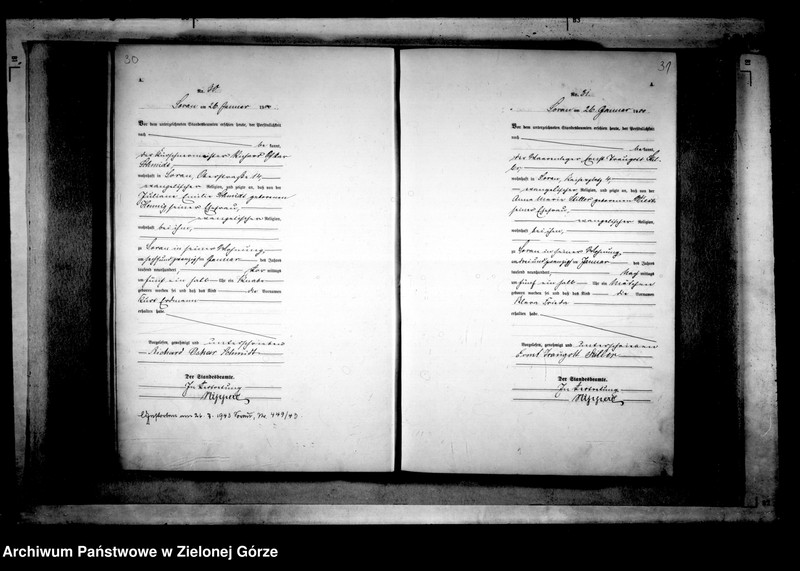 30
A.
Nr. 30.
Sorau am 26. Januar 1900
Vor dem unterzeichneten Standesbeamten erschien heute, der Persönlichkeit
nach
be kannt,
der Kürschnermeister Richard Oskar
Schmidt,
wohnhaft in Sorau, 14,
evangelischer Religion, und zeigte an, daß von der
Juliane Emilie Schmidt geborenen
Hennig seiner Ehefrau,
evangelischer Religion,
wohnhaft bei ihm,
zu Sorau in seiner Wohnung,
am Januar des Jahres
tausend neunhundert Vor mittags
um fünf ein halb Uhr ein Knabe
geboren worden sei und daß das Kind die Vornamen
Kurt Erdmann
erhalten habe.
Vorgelesen, genehmigt und unterschrieben
Richard Oskar Schmidt
Der Standesbeamte.
In Vertretung
am 26. 7. 1943 Sorau, Nr. 449/43.
31
A.
Nr. 31.
Sorau am 26. Januar 1900
Vor dem unterzeichneten Standesbeamten erschien heute, der Persönlichkeit
nach
be kannt,
der Ernst Traugott
wohnhaft in Sorau, 4,
evangelischer Religion, und zeigte an, daß von der
Anna Marie geborenen
seiner Ehefrau,
evangelischer Religion,
wohnhaft bei ihm,
zu Sorau in seiner Wohnung,
am Januar des Jahres
tausend neunhundert Nach mittags
um fünf ein halb Uhr ein Mädchen
geboren worden sei und daß das Kind die Vornamen
Klara Frieda
erhalten habe.
Vorgelesen, genehmigt und unterschrieben
Ernst Traugott
Der Standesbeamte.
In Vertretung
Archiwum Państwowe w Zielonej Górze